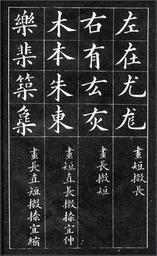 左在尤尨
畫短撇長
右有厷灰
畫長撇短
木本朱東
畫短直長撇捺宜伸
樂棐築集
畫長直短撇捺宜縮